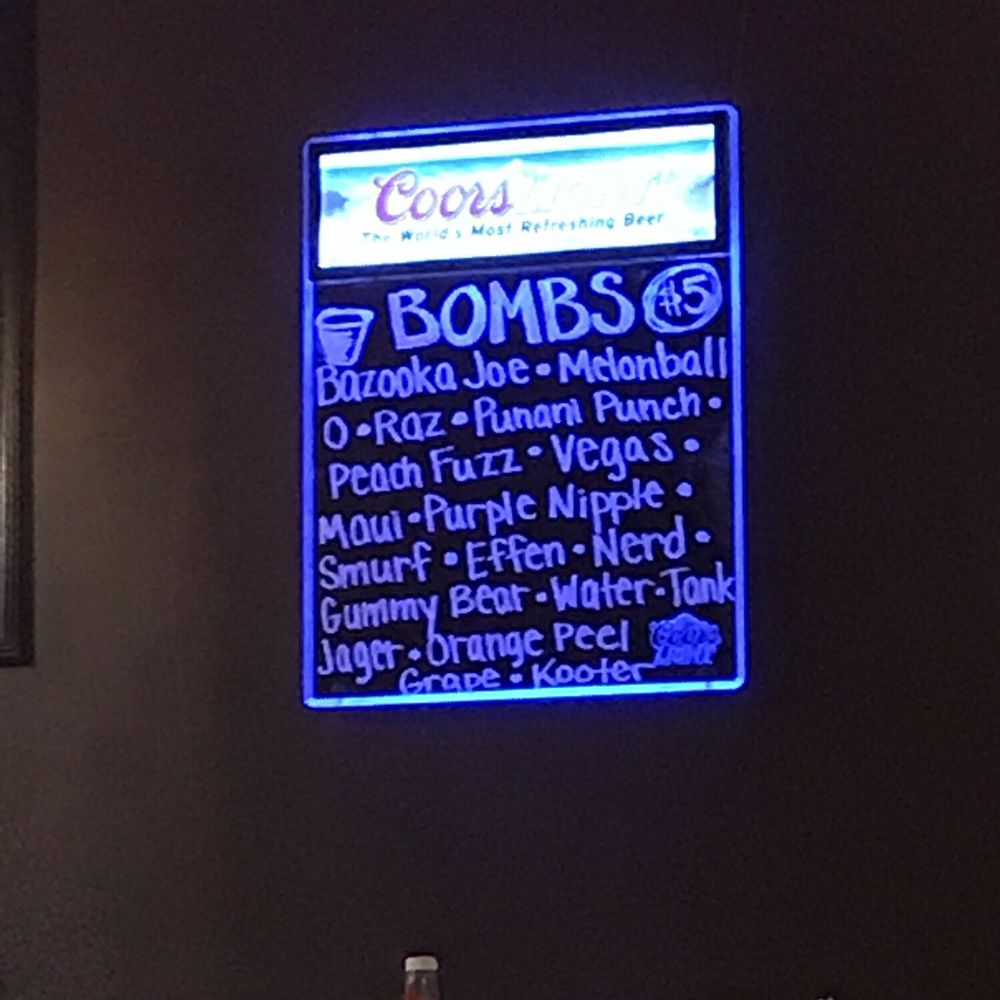 Coors Light
The World's Most Refreshing Beer
BOMBS $5
Bazooka Joe • Melonball
O • Raz • Punani Punch •
Peach Fuzz • Vegas •
Maui • Purple Nipple •
Smurf • Effen • Nerd •
Gummy Bear • Water-Tank
Jager • Orange Peel
Grape • Kooter
Coors
LIGHT